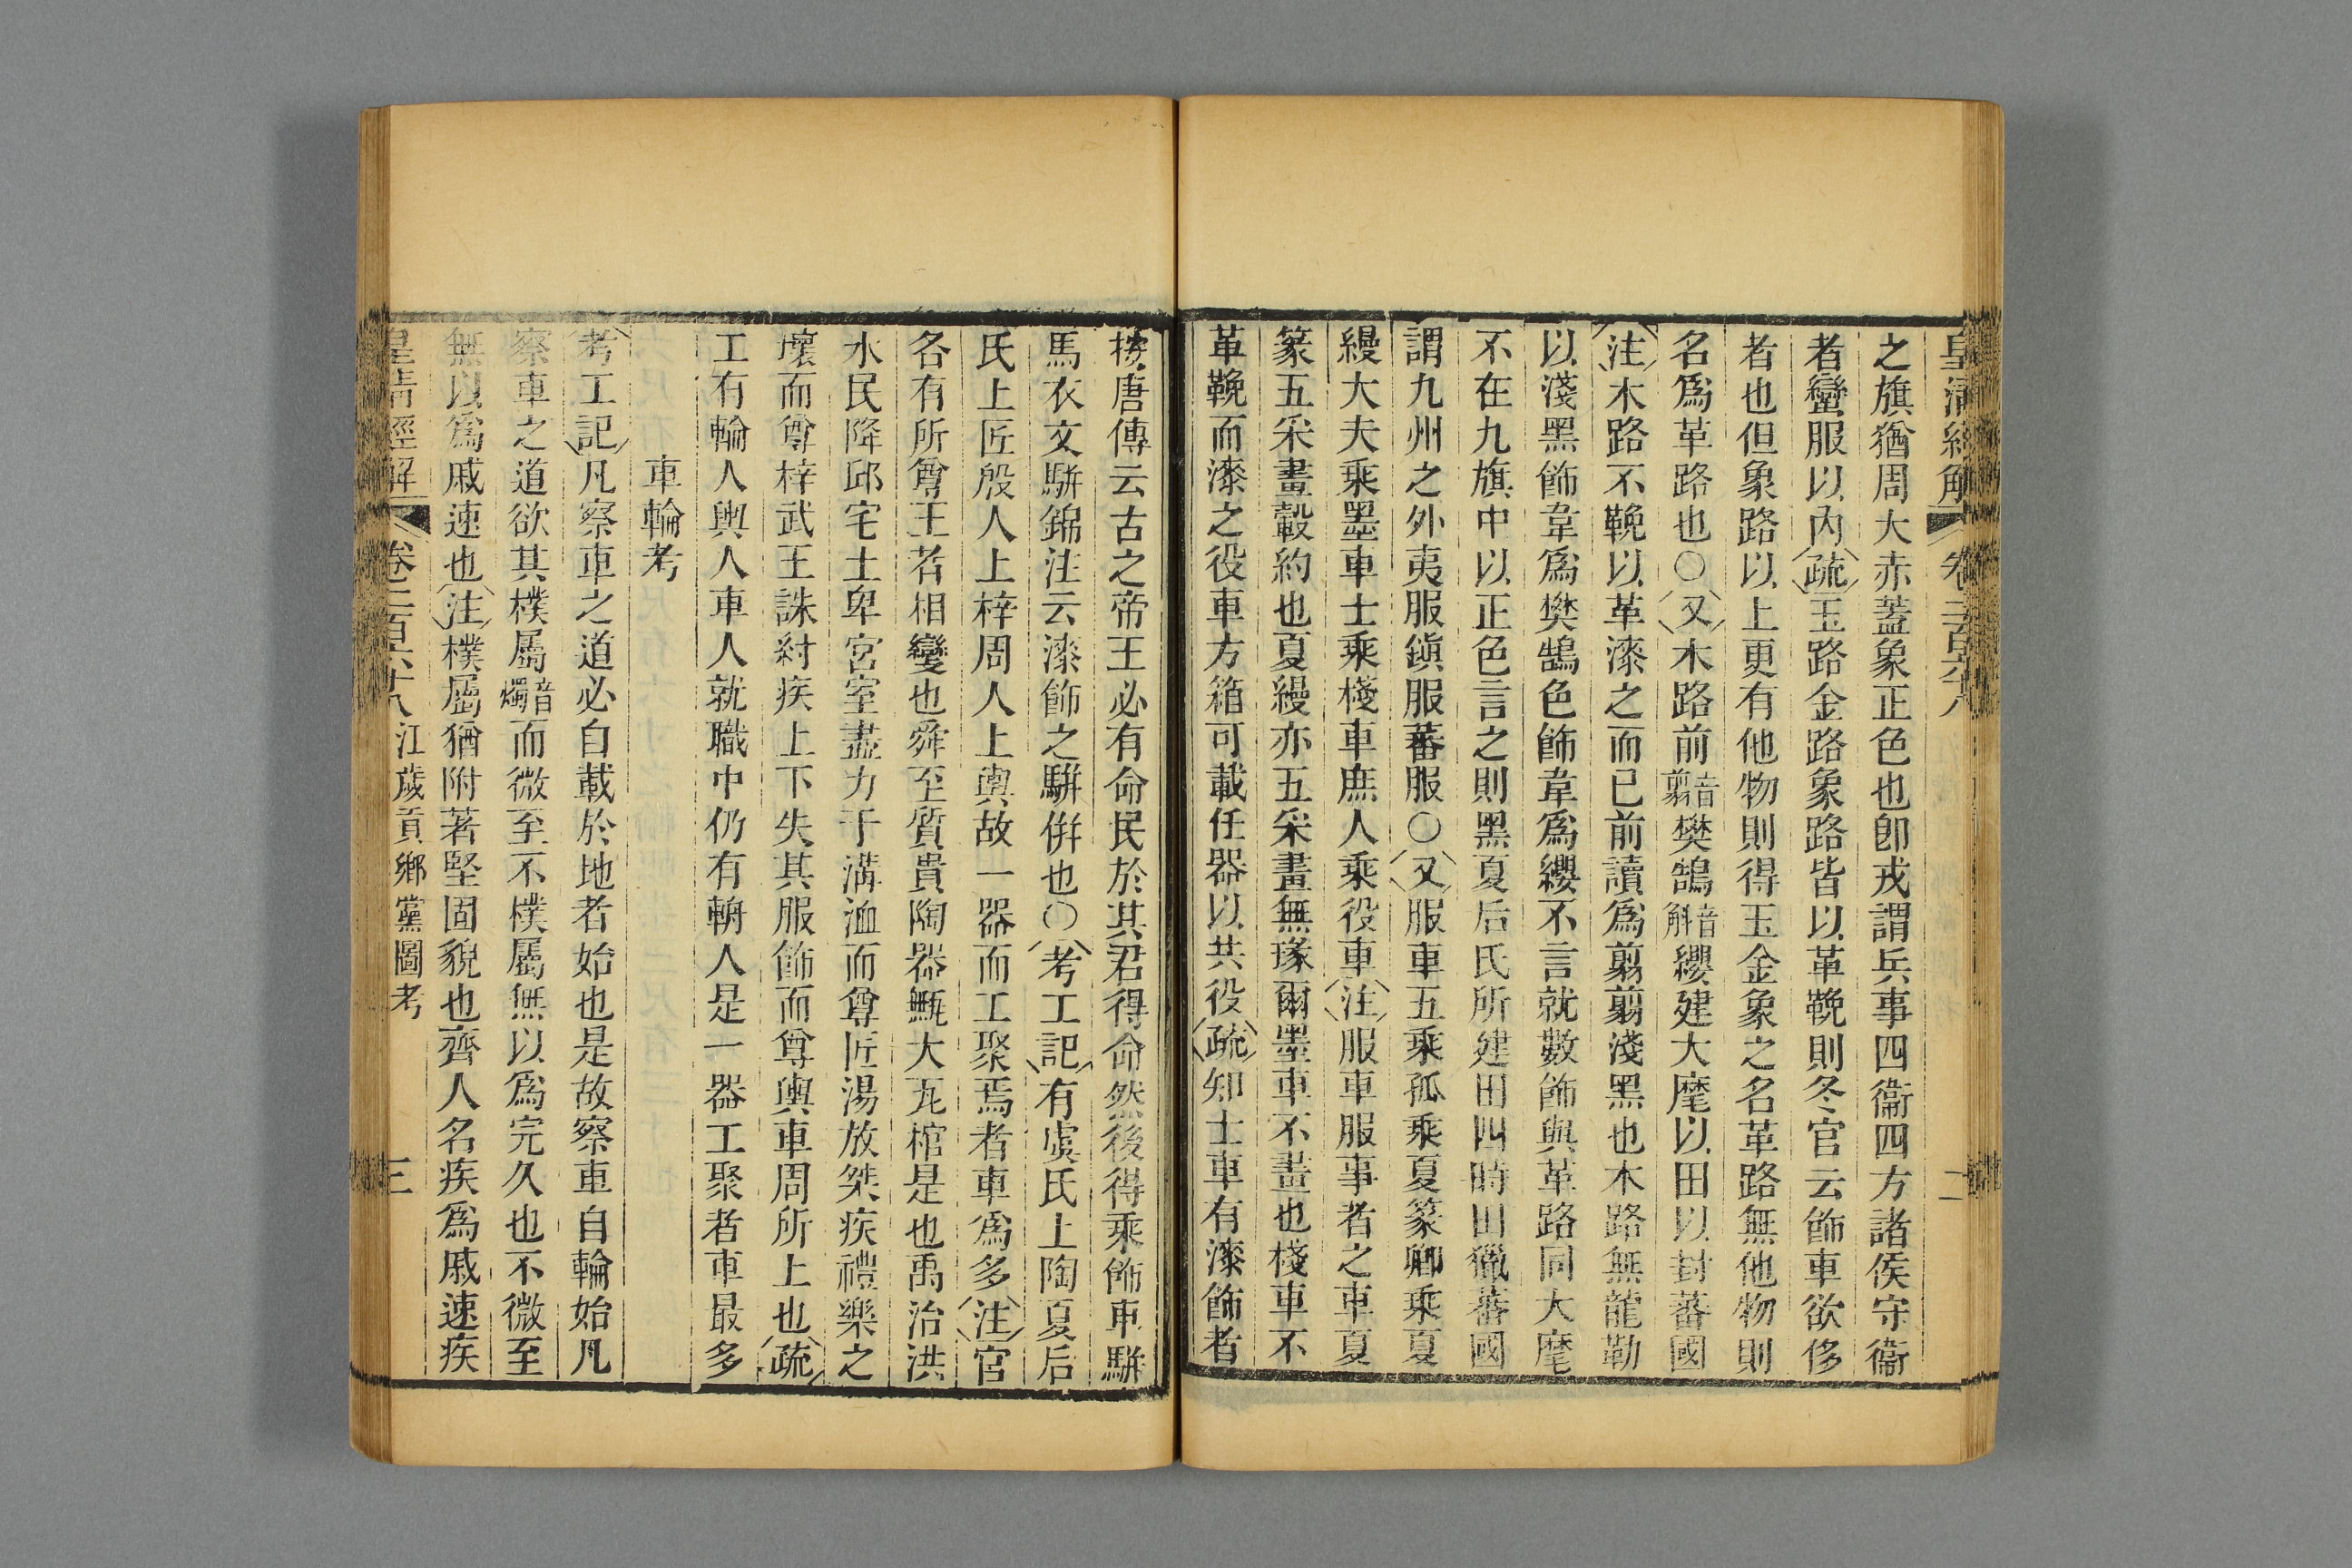 皇清經解 卷二百六十八 二
之旗猶周大赤蓋象正色也卽戎謂兵事四衞四方諸侯守衞
者蠻服以內疏玉路金路象路皆以革鞔則冬官云飾車欲侈
者也但象路以上更有他物則得玉金象之名革路無他物則
名爲革路也○又木路前音翦樊鵠音斛纓建大麾以田以封蕃國
注木路不鞔以革漆之而已前讀爲翦翦淺黑也木路無龍勒
以淺黑飾韋爲樊鵠色飾韋爲纓不言就數飾與革路同大麾
不在九旗中以正色言之則黑夏后氏所建田四時田獵蕃國
謂九州之外夷服鎭服蕃服○又服車五乘孤乘夏篆卿乘夏
縵大夫乘墨車士乘棧車庶人乘役車注服車服事者之車夏
篆五采畫轂約也夏縵亦五采畫無瑑爾墨車不畫也棧車不
革鞔而漆之役車方箱可載任器以共役疏知士車有漆飾者
按唐傳云古之帝王必有命民於其君得命然後得乘飾車駢
馬衣文駢錦注云漆飾之駢倂也○考工記有虞氏上陶夏后
氏上匠殷人上梓周人上輿故一器而工聚焉者車爲多注官
各有所尊王者相變也舜至質貴陶器甒大瓦棺是也禹治洪
水民降邱宅土卑宮室盡力于溝洫而尊匠湯放桀疾禮樂之
壞而尊梓武王誅紂疾上下失其服飾而尊輿車周所上也疏
工有輪人輿人車人就職中仍有輈人是一器工聚者車最多
車輪考
考工記凡察車之道必自載於地者始也是故察車自輪始凡
察車之道欲其樸屬音燭而微至不樸屬無以爲完久也不微至
無以爲戚速也注樸屬猶附著堅固貌也齊人名疾爲戚速疾
皇清經解 卷二百六十八 江歲貢鄉黨圖考 三